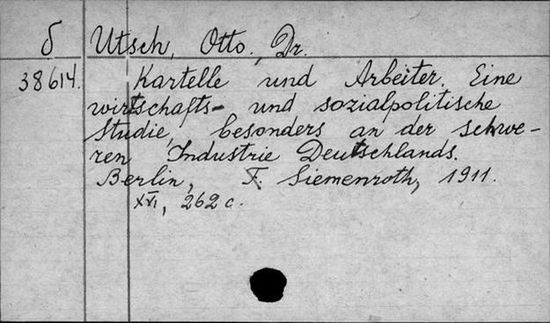 δ Utsch, Otto, Dr.
38614. Kartelle und Arbeiter. Eine
wirtschafts- und sozialpolitische
Studie, besonders an der schwe-
ren Industrie Deutschlands.
Berlin, F. Siemenroth, 1911.
XVI, 262 c.